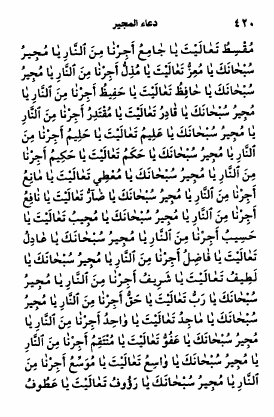 ٤٢٠ دعاء المجير
مُقْسِطُ تَعَالَيْتَ يَا جَامِعُ أَجِرْنَا مِنَ النَّارِ يَا مُجِيرُ
سُبْحَانَكَ يَا مُعِزُّ تَعَالَيْتَ يَا مُذِلُّ أَجِرْنَا مِنَ النَّارِ يَا مُجِيرُ
سُبْحَانَكَ يَا حَافِظُ تَعَالَيْتَ يَا حَفِيظُ أَجِرْنَا مِنَ النَّارِ يَا
مُجِيرُ سُبْحَانَكَ يَا قَادِرُ تَعَالَيْتَ يَا مُقْتَدِرُ أَجِرْنَا مِنَ النَّارِ
يَا مُجِيرُ سُبْحَانَكَ يَا عَلِيمُ تَعَالَيْتَ يَا حَلِيمُ أَجِرْنَا مِنَ
النَّارِ يَا مُجِيرُ سُبْحَانَكَ يَا حَكَمُ تَعَالَيْتَ يَا حَكِيمُ أَجِرْنَا
مِنَ النَّارِ يَا مُجِيرُ سُبْحَانَكَ يَا مُعْطِي تَعَالَيْتَ يَا مَانِعُ
أَجِرْنَا مِنَ النَّارِ يَا مُجِيرُ سُبْحَانَكَ يَا ضَارُّ تَعَالَيْتَ يَا نَافِعُ
أَجِرْنَا مِنَ النَّارِ يَا مُجِيرُ سُبْحَانَكَ يَا مُجِيبُ تَعَالَيْتَ يَا
حَسِيبُ أَجِرْنَا مِنَ النَّارِ يَا مُجِيرُ سُبْحَانَكَ يَا عَادِلُ
تَعَالَيْتَ يَا فَاضِلُ أَجِرْنَا مِنَ النَّارِ يَا مُجِيرُ سُبْحَانَكَ يَا
لَطِيفُ تَعَالَيْتَ يَا شَرِيفُ أَجِرْنَا مِنَ النَّارِ يَا مُجِيرُ
سُبْحَانَكَ يَا رَبُّ تَعَالَيْتَ يَا حَقُّ أَجِرْنَا مِنَ النَّارِ يَا مُجِيرُ
سُبْحَانَكَ يَا مَاجِدُ تَعَالَيْتَ يَا وَاحِدُ أَجِرْنَا مِنَ النَّارِ يَا
مُجِيرُ سُبْحَانَكَ يَا عَفُوُّ تَعَالَيْتَ يَا مُنْتَقِمُ أَجِرْنَا مِنَ النَّارِ
يَا مُجِيرُ سُبْحَانَكَ يَا وَاسِعُ تَعَالَيْتَ يَا مُوَسِّعُ أَجِرْنَا مِنَ
النَّارِ يَا مُجِيرُ سُبْحَانَكَ يَا رَؤُوفُ تَعَالَيْتَ يَا عَطُوفُ